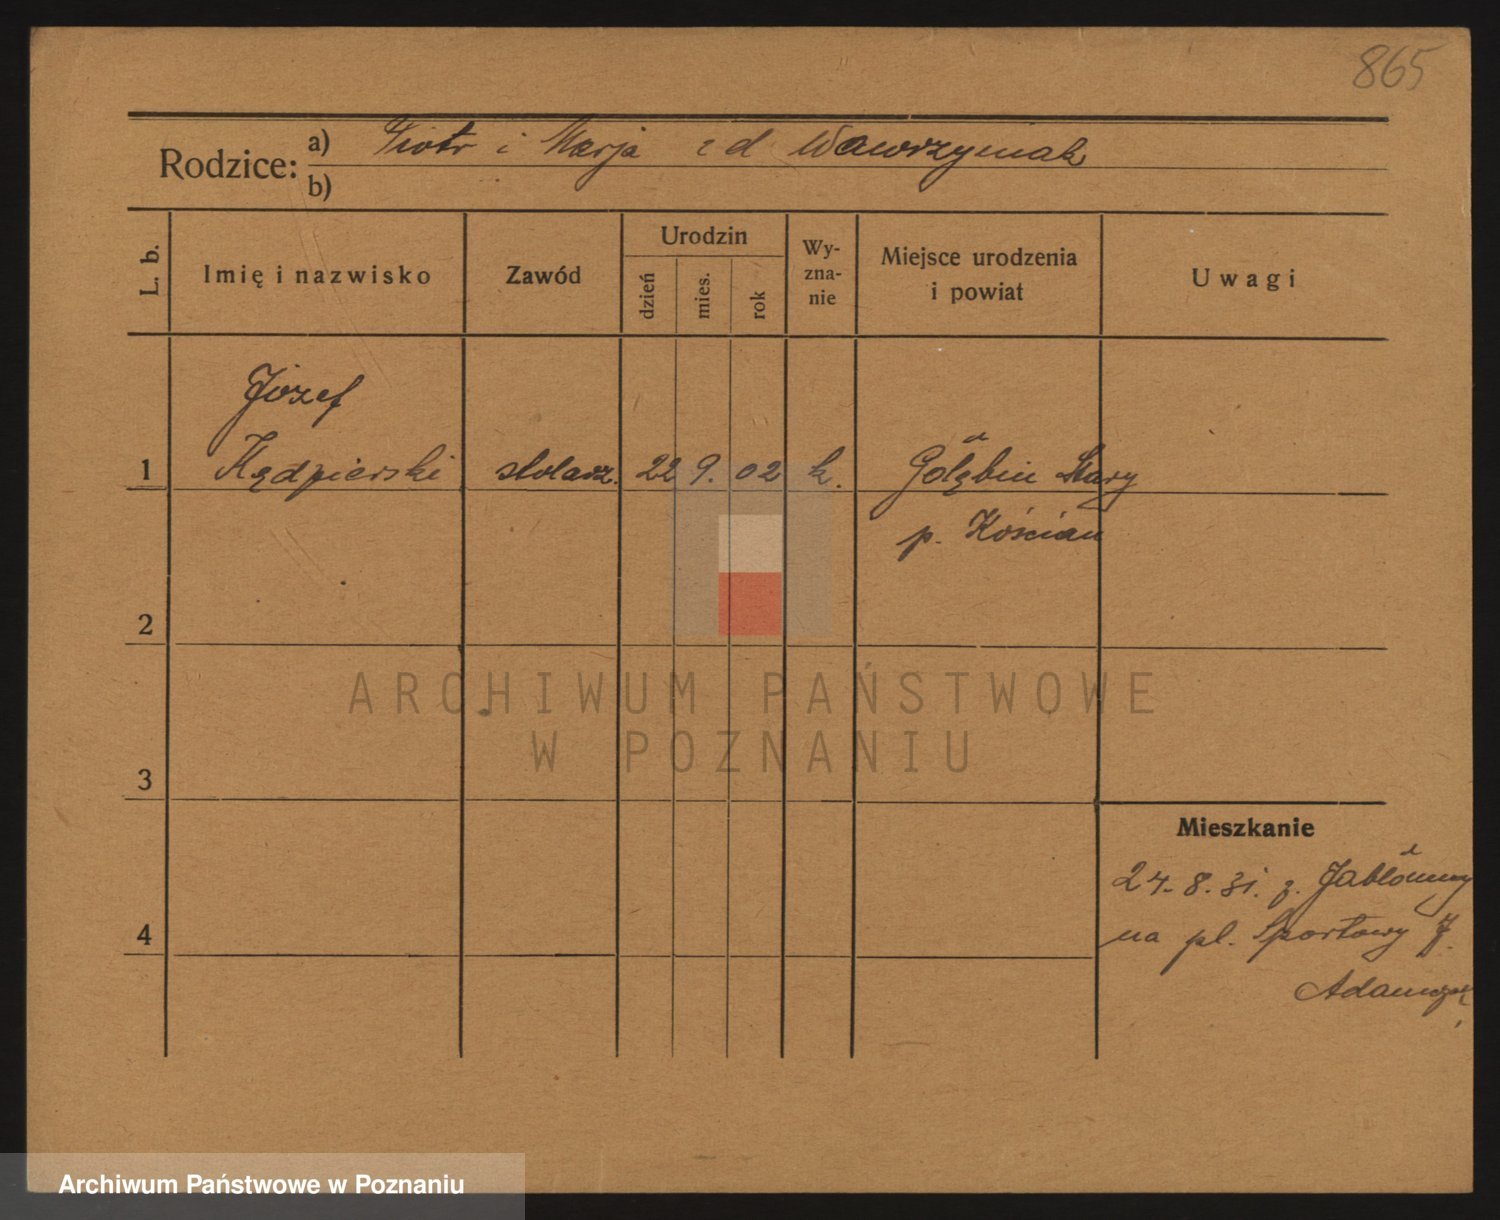 865
Rodzice: a) Piotr i Marja z d Wawrzyniak
b)
L. b.
Imię i nazwisko
Zawód
Urodzin
dzień
mies.
rok
Wy-
zna-
nie
Miejsce urodzenia
i powiat
Uwagi
Józef
1 Kędzierski stolarz. 22 9. 02 k. Gołębin Stary
p. Kościan
2
3
4
Mieszkanie
24.8.31. z. Jabłonny
na pl. Sportowy 7.
Adamczak
ARCHIWUM PAŃSTWOWE
W POZNANIU
Archiwum Państwowe w Poznaniu